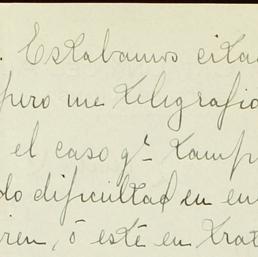 . Estabamos cita
pero me telegrafió
el caso qe tamp
do dificultad en en
ren, ó esté en trat